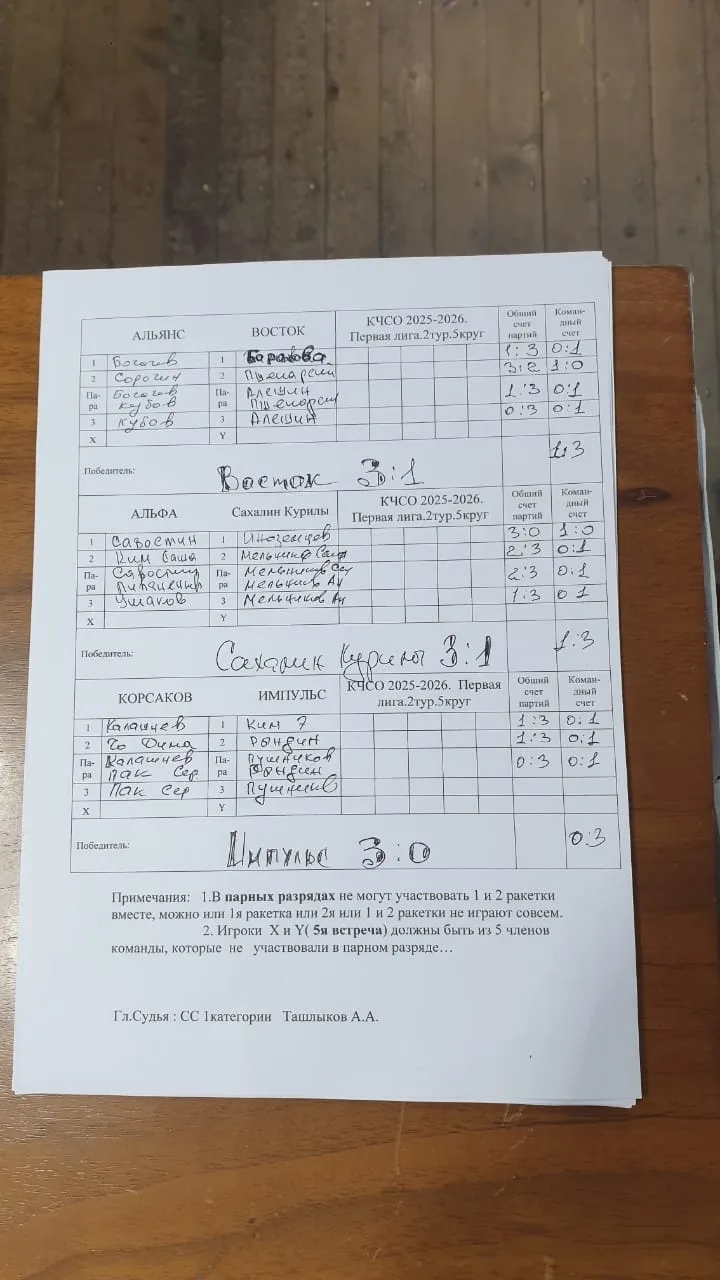 АЛЬЯНС ВОСТОК КЧСО 2025-2026. Первая лига.2тур.5круг Общий счет партий Коман-дный счет
1 Богачев 1 1:3 0:1
2 Сорочин 2 3:2 1:0
Па-ра Богачев Кубов Па-ра Алешин 1:3 0:1
3 Кубов 3 Алешин 0:3 0:1
X Y
Победитель: Восток 3:1 1:3
АЛЬФА Сахалин Курилы КЧСО 2025-2026. Первая лига.2тур.5круг Общий счет партий Коман-дный счет
1 Савостин 1 Иноземцев 3:0 1:0
2 Ким Саша 2 2:3 0:1
Па-ра Па-ра Мельников Ан 2:3 0:1
3 Ушаков 3 Мельников Ан 1:3 0 1
X Y
Победитель: Сахалин Курилы 3:1 1:3
КОРСАКОВ ИМПУЛЬС КЧСО 2025-2026. Первая лига.2тур.5круг Общий счет партий Коман-дный счет
1 Калашнев 1 Ким 1:3 0:1
2 Чо Дима 2 Рындин 1:3 0:1
Па-ра Калашнев Пак Сер Па-ра Пушников Рындин 0:3 0:1
3 Пак Сер 3
X Y
Победитель: Импульс 3:0 0:3
Примечания: 1.В парных разрядах не могут участвовать 1 и 2 ракетки
вместе, можно или 1я ракетка или 2я или 1 и 2 ракетки не играют совсем.
2. Игроки X и Y( 5я встреча) должны быть из 5 членов
команды, которые не участвовали в парном разряде…
Гл.Судья : СС 1категории Ташлыков А.А.